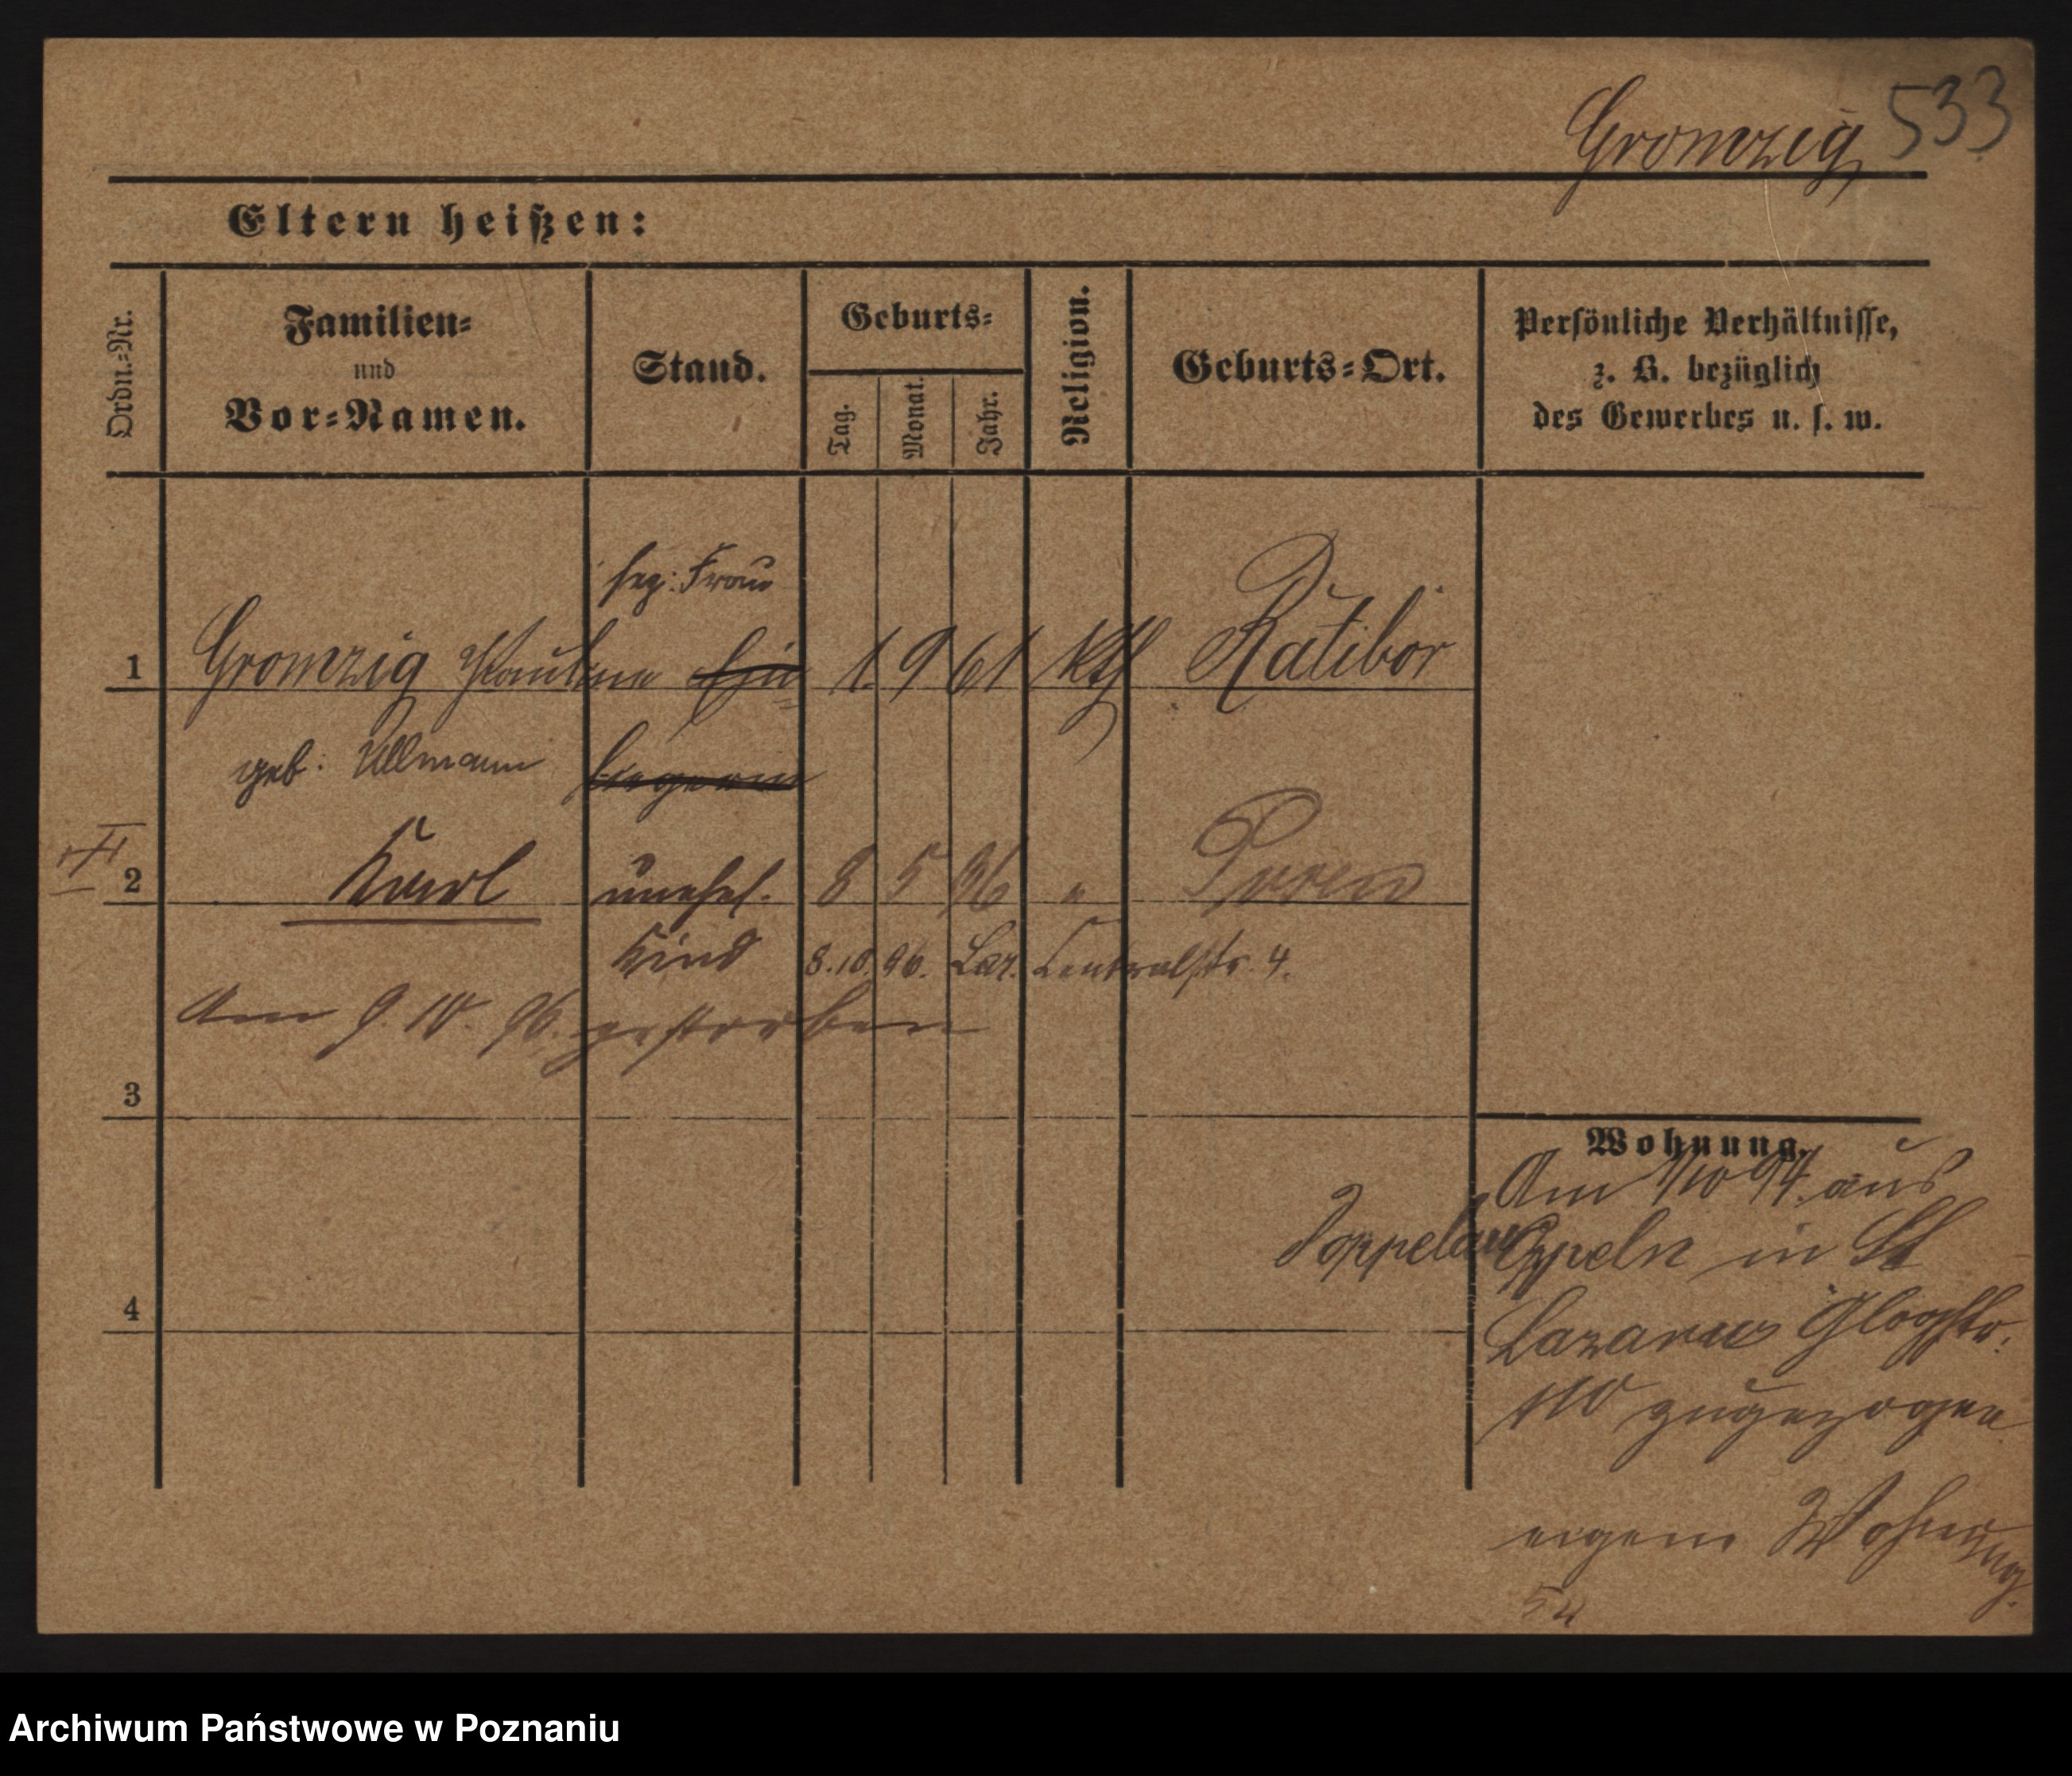 Gromzig 533
Eltern heißen:
Ordn.-Nr.
Familien-
und
Vor-Namen.
Stand.
Geburts-
Tag.
Monat.
Jahr.
Religion.
Geburts-Ort.
Persönliche Verhältnisse,
z. B. bezüglich
des Gewerbes u. s. w.
sep: Frau
1 Gromzig Pauline 1. 9 61 kth Ratibor
geb: Ullmann
2 Karl unehel. 8 5 96 "
Kind 8.10.96. Laz. Centralstr. 4.
Am 9. 10. 96. gestorben
3
Wohnung.
Am 1/10 94 aus
Oppeln in St
Lazarus Glogstr.
110 zugezogen
4
eigene Wohnung.
Archiwum Państwowe w Poznaniu